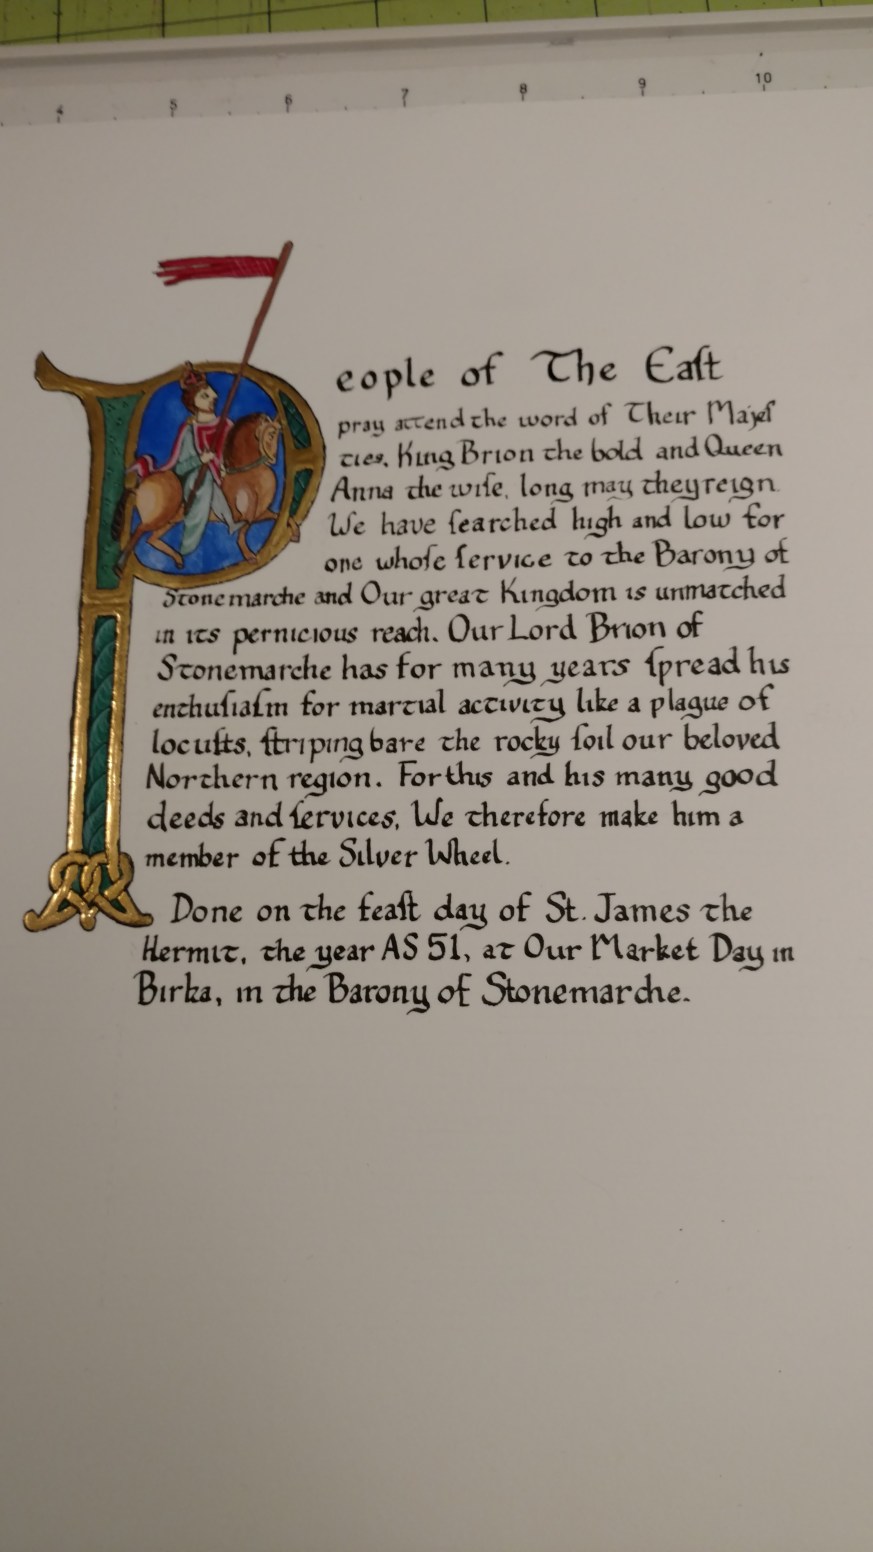 4 5 6 7 8 9 10
People of The Eaſt
pray attend the word of Their Majeſ
ties, King Brion the bold and Queen
Anna the wiſe, long may they reign.
We have ſearched high and low for
one whoſe ſervice to the Barony of
Stonemarche and Our great Kingdom is unmatched
in its pernicious reach. Our Lord Brion of
Stonemarche has for many years ſpread his
enthuſiaſm for martial activity like a plague of
locuſts, ſtriping bare the rocky ſoil our beloved
Northern region. For this and his many good
deeds and ſervices, We therefore make him a
member of the Silver Wheel.
Done on the feaſt day of St. James the
Hermit, the year AS 51, at Our Market Day in
Birka, in the Barony of Stonemarche.